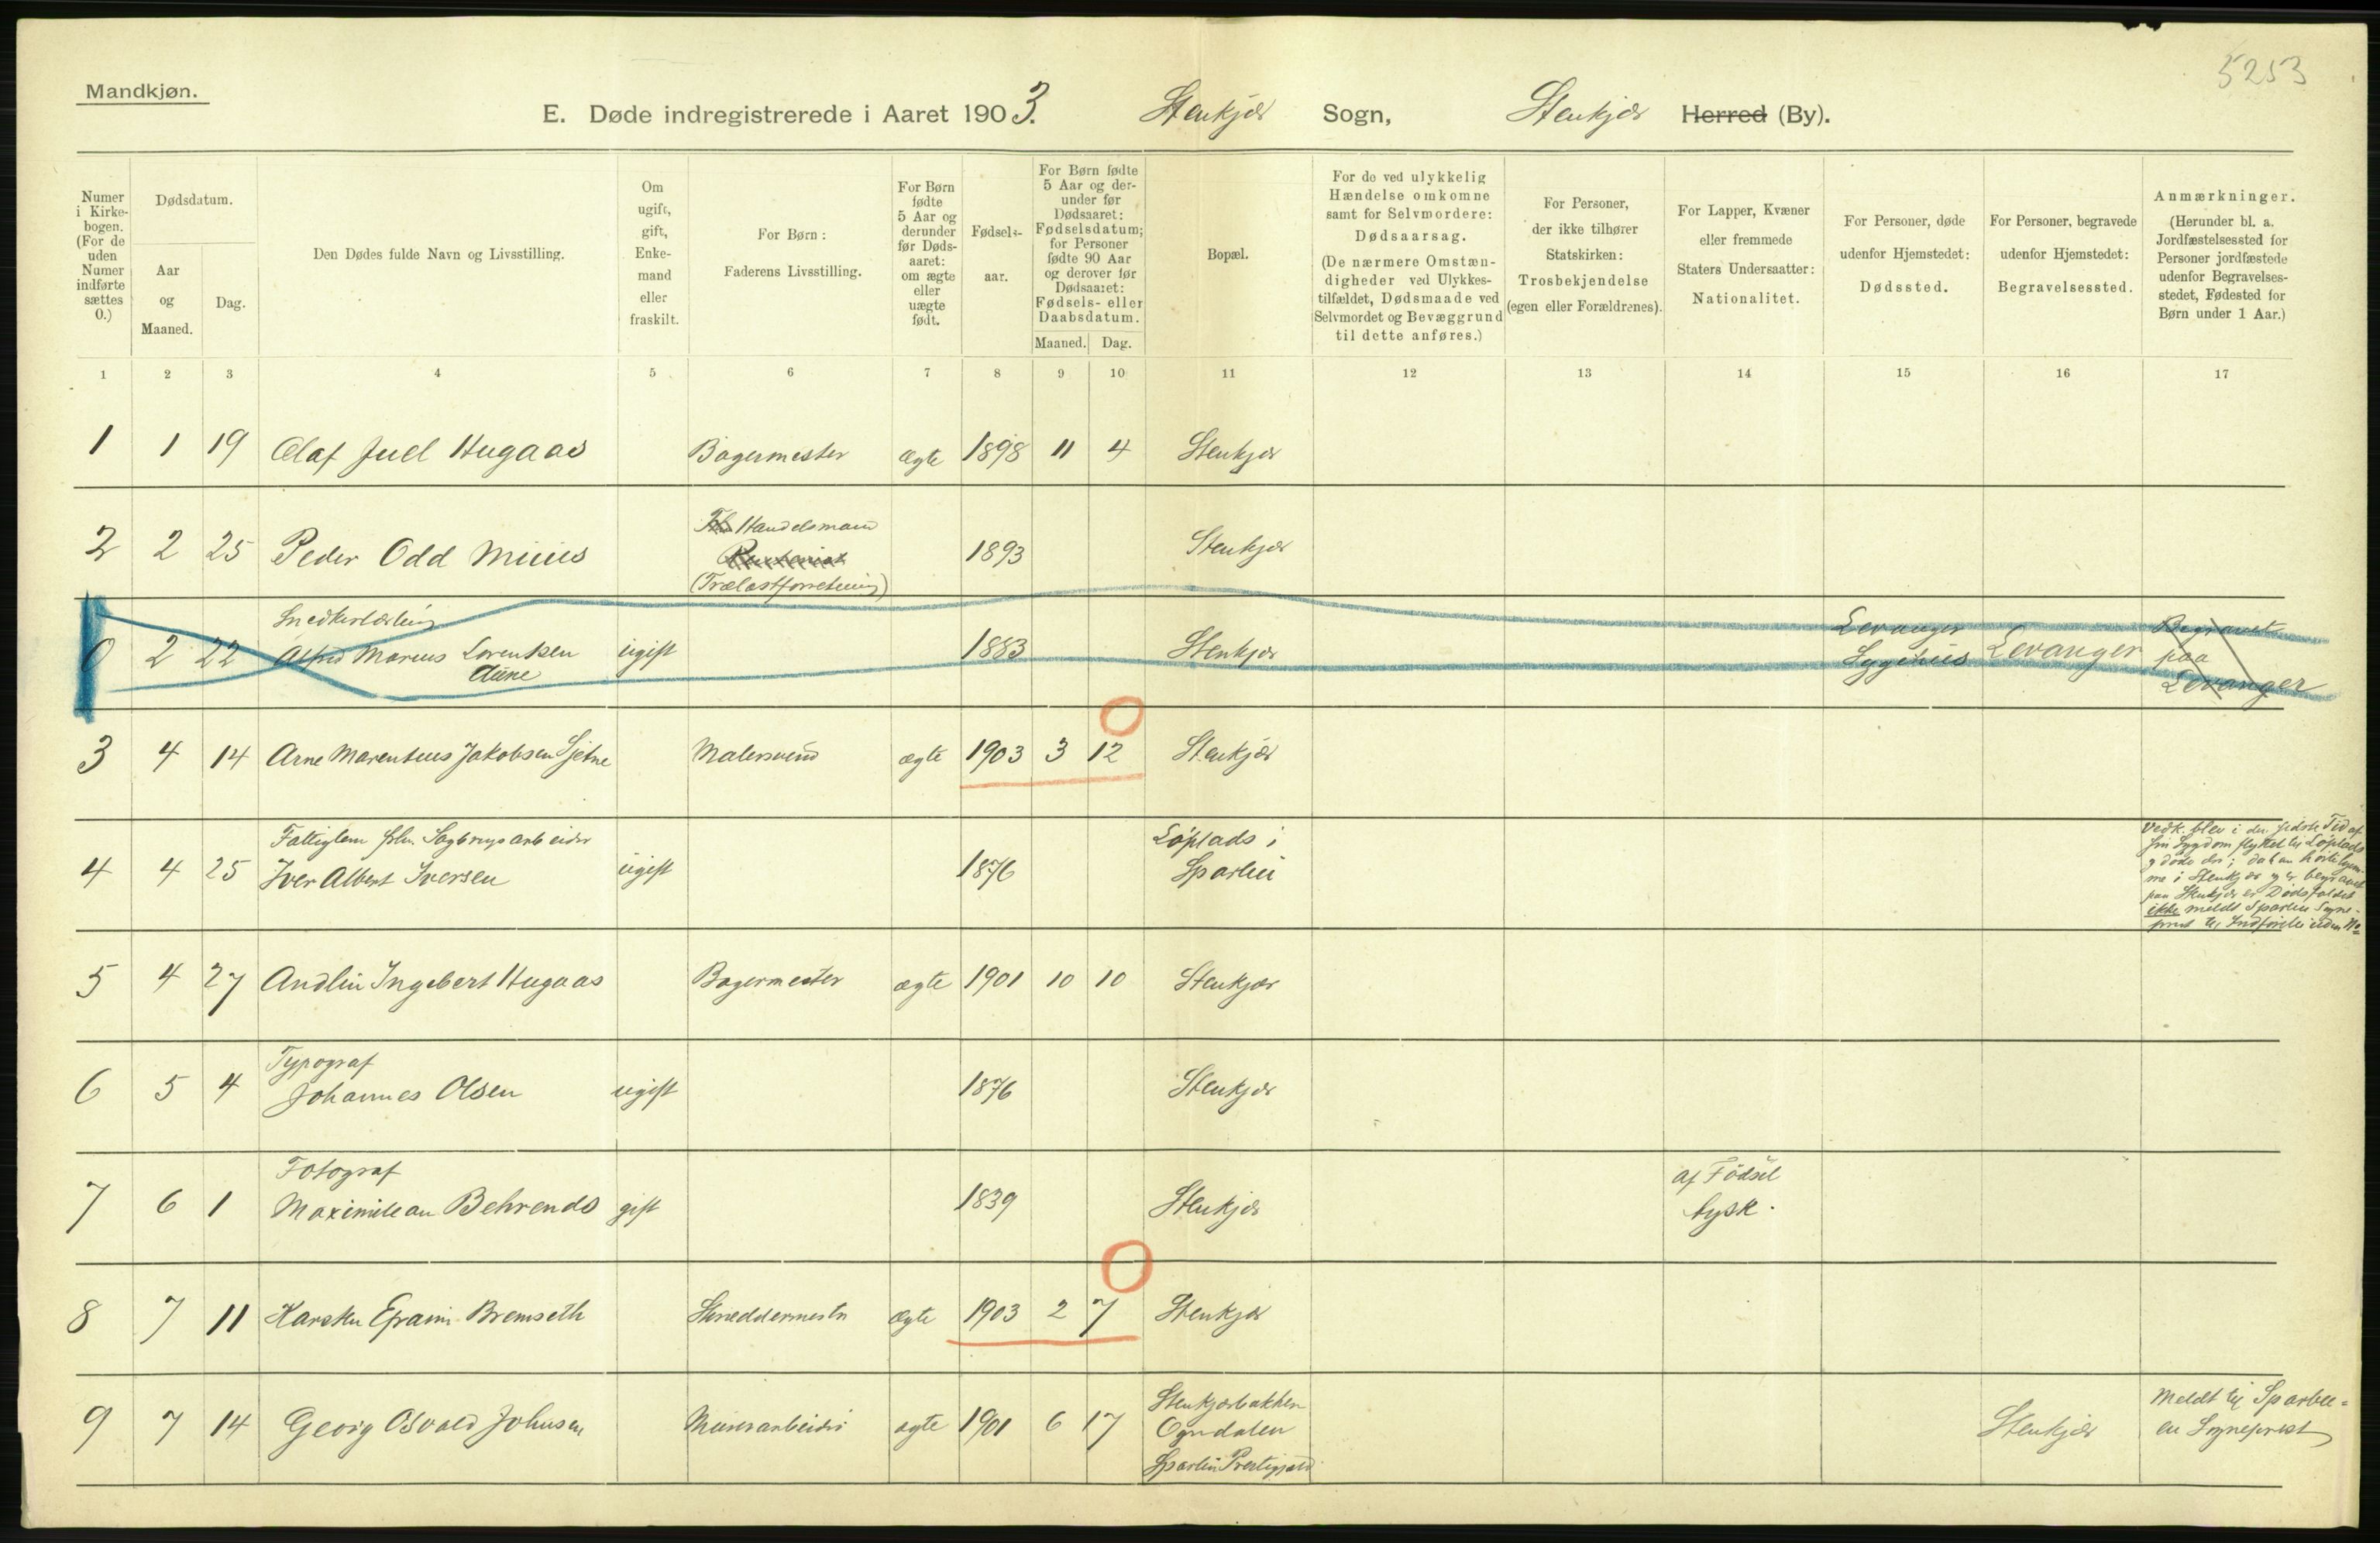 5253
Mandkjøn.
E. Døde indregistrerede i Aaret 1903. Stenkjær Sogn, Stenkjær Herred (By).
Numer i Kirkebogen. (For de uden Numer indførte sættes 0.)
Dødsdatum.
Aar og Maaned.
Dag.
Den Dødes fulde Navn og Livsstilling.
Om ugift, gift, Enkemand eller fraskilt.
For Børn: Faderens Livsstilling.
For Børn fødte 5 Aar og derunder før Dødsaaret: om ægte eller uægte født.
Fødselsaar.
For Børn fødte 5 Aar og derunder før Dødsaaret: Fødselsdatum; for Personer fødte 90 Aar og derover før Dødsaaret: Fødsels- eller Daabsdatum.
Maaned. Dag.
Bopæl.
For de ved ulykkelig Hændelse omkomne samt for Selvmordere: Dødsaarsag. (De nærmere Omstændigheder ved Ulykkestilfældet, Dødsmaade ved Selvmordet og Bevæggrund til dette anføres.)
For Personer, der ikke tilhører Statskirken: Trosbekjendelse (egen eller Forældrenes).
For Lapper, Kvæner eller fremmede Staters Undersaatter: Nationalitet.
For Personer, døde udenfor Hjemstedet: Dødssted.
For Personer, begravede udenfor Hjemstedet: Begravelsessted.
Anmærkninger. (Herunder bl. a. Jordfæstelsessted for Personer jordfæstede udenfor Begravelsesstedet, Fødested for Børn under 1 Aar.)
1 2 3 4 5 6 7 8 9 10 11 12 13 14 15 16 17
1 1 19 Olaf Juel Hugaas Bagermester ægte 1898 11 4 Stenkjær
Handelsmand
2 2 25 Peder Odd Müus 1893 Stenkjær
(Trælastforretning)
Snedkerlærling
0 2 22 Alfred Marius Lorentsen Aune ugift 1883 Stenkjær Levanger Sygehus Levanger Begravet paa Levanger
3 4 14 Arne Marentius Jakobsen Sjetne Malersvend ægte 1903 3 12 Stenkjær
Fattiglem fhv. Sagbrugsarbeider
4 4 25 Iver Albert Iversen ugift 1876 Löplads i Sparbu
Vedk. blev i den sidste Tid af
sin Sygdom flyttet til Löplads
og døde der; da han hörte hjem-
me i Stenkjær og er begravet
paa Stenkjær er Dødsfaldet
ikke meldt Sparbu Sogne-
prest til Indförelse uden No
5 4 27 Andlin Ingebert Hugaas Bagermester ægte 1901 10 10 Stenkjær
Typograf
6 5 4 Johannes Olsen ugift 1876 Stenkjær
Fotograf
7 6 1 Maximilean Behrends gift 1839 Stenkjær af Födsel tysk.
8 7 11 Karsten Efraim Bremseth Skreddermester ægte 1903 2 7 Stenkjær
9 7 14 Georg Osvald Johnsen Murerarbeider ægte 1901 6 17 Stenkjærbakken Ogndalen Sparbu Prestegjeld Stenkjær Meldt til Sparbu-
en Sogneprest